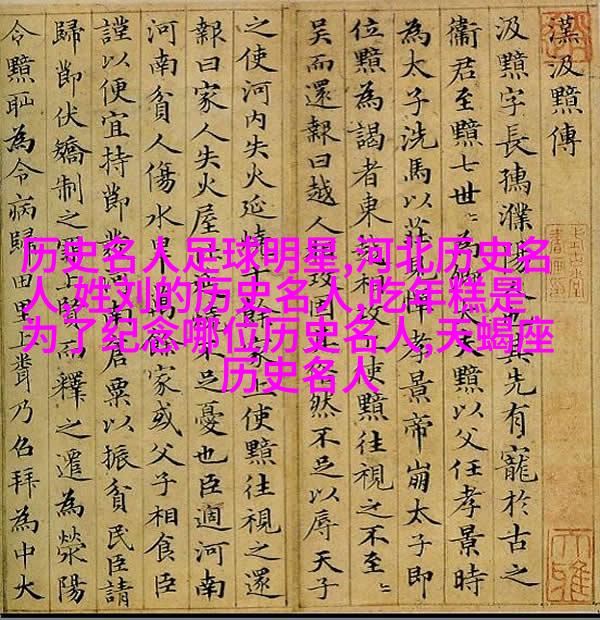 漢汲黯傳
汲黯字長孺濮陽人也其先有寵於古之
衛君至黯七世〻為卿夫黯以父任孝景時
為太子洗馬以莊見憚孝景帝崩太子即
位黯為謁者東越相攻使黯往視之不至〻
吳而還報曰越人相攻固然不足以辱天子
之使河內失火延燒千餘家上使黯往視之還
報曰家人失火屋比不足憂也臣適河南
河南貧人傷水旱萬餘家或父子相食臣
謹以便宜持節發河南倉粟以振貧民臣請
歸節伏矯制之罪上賢而釋之遷為滎陽
令黯恥為令病歸田里上乃召拜為中大
历史名人足球明星,河北历史名
人,姓刘的历史名人,吃年糕是
为了纪念哪位历史名人,天蝎座
历史名人